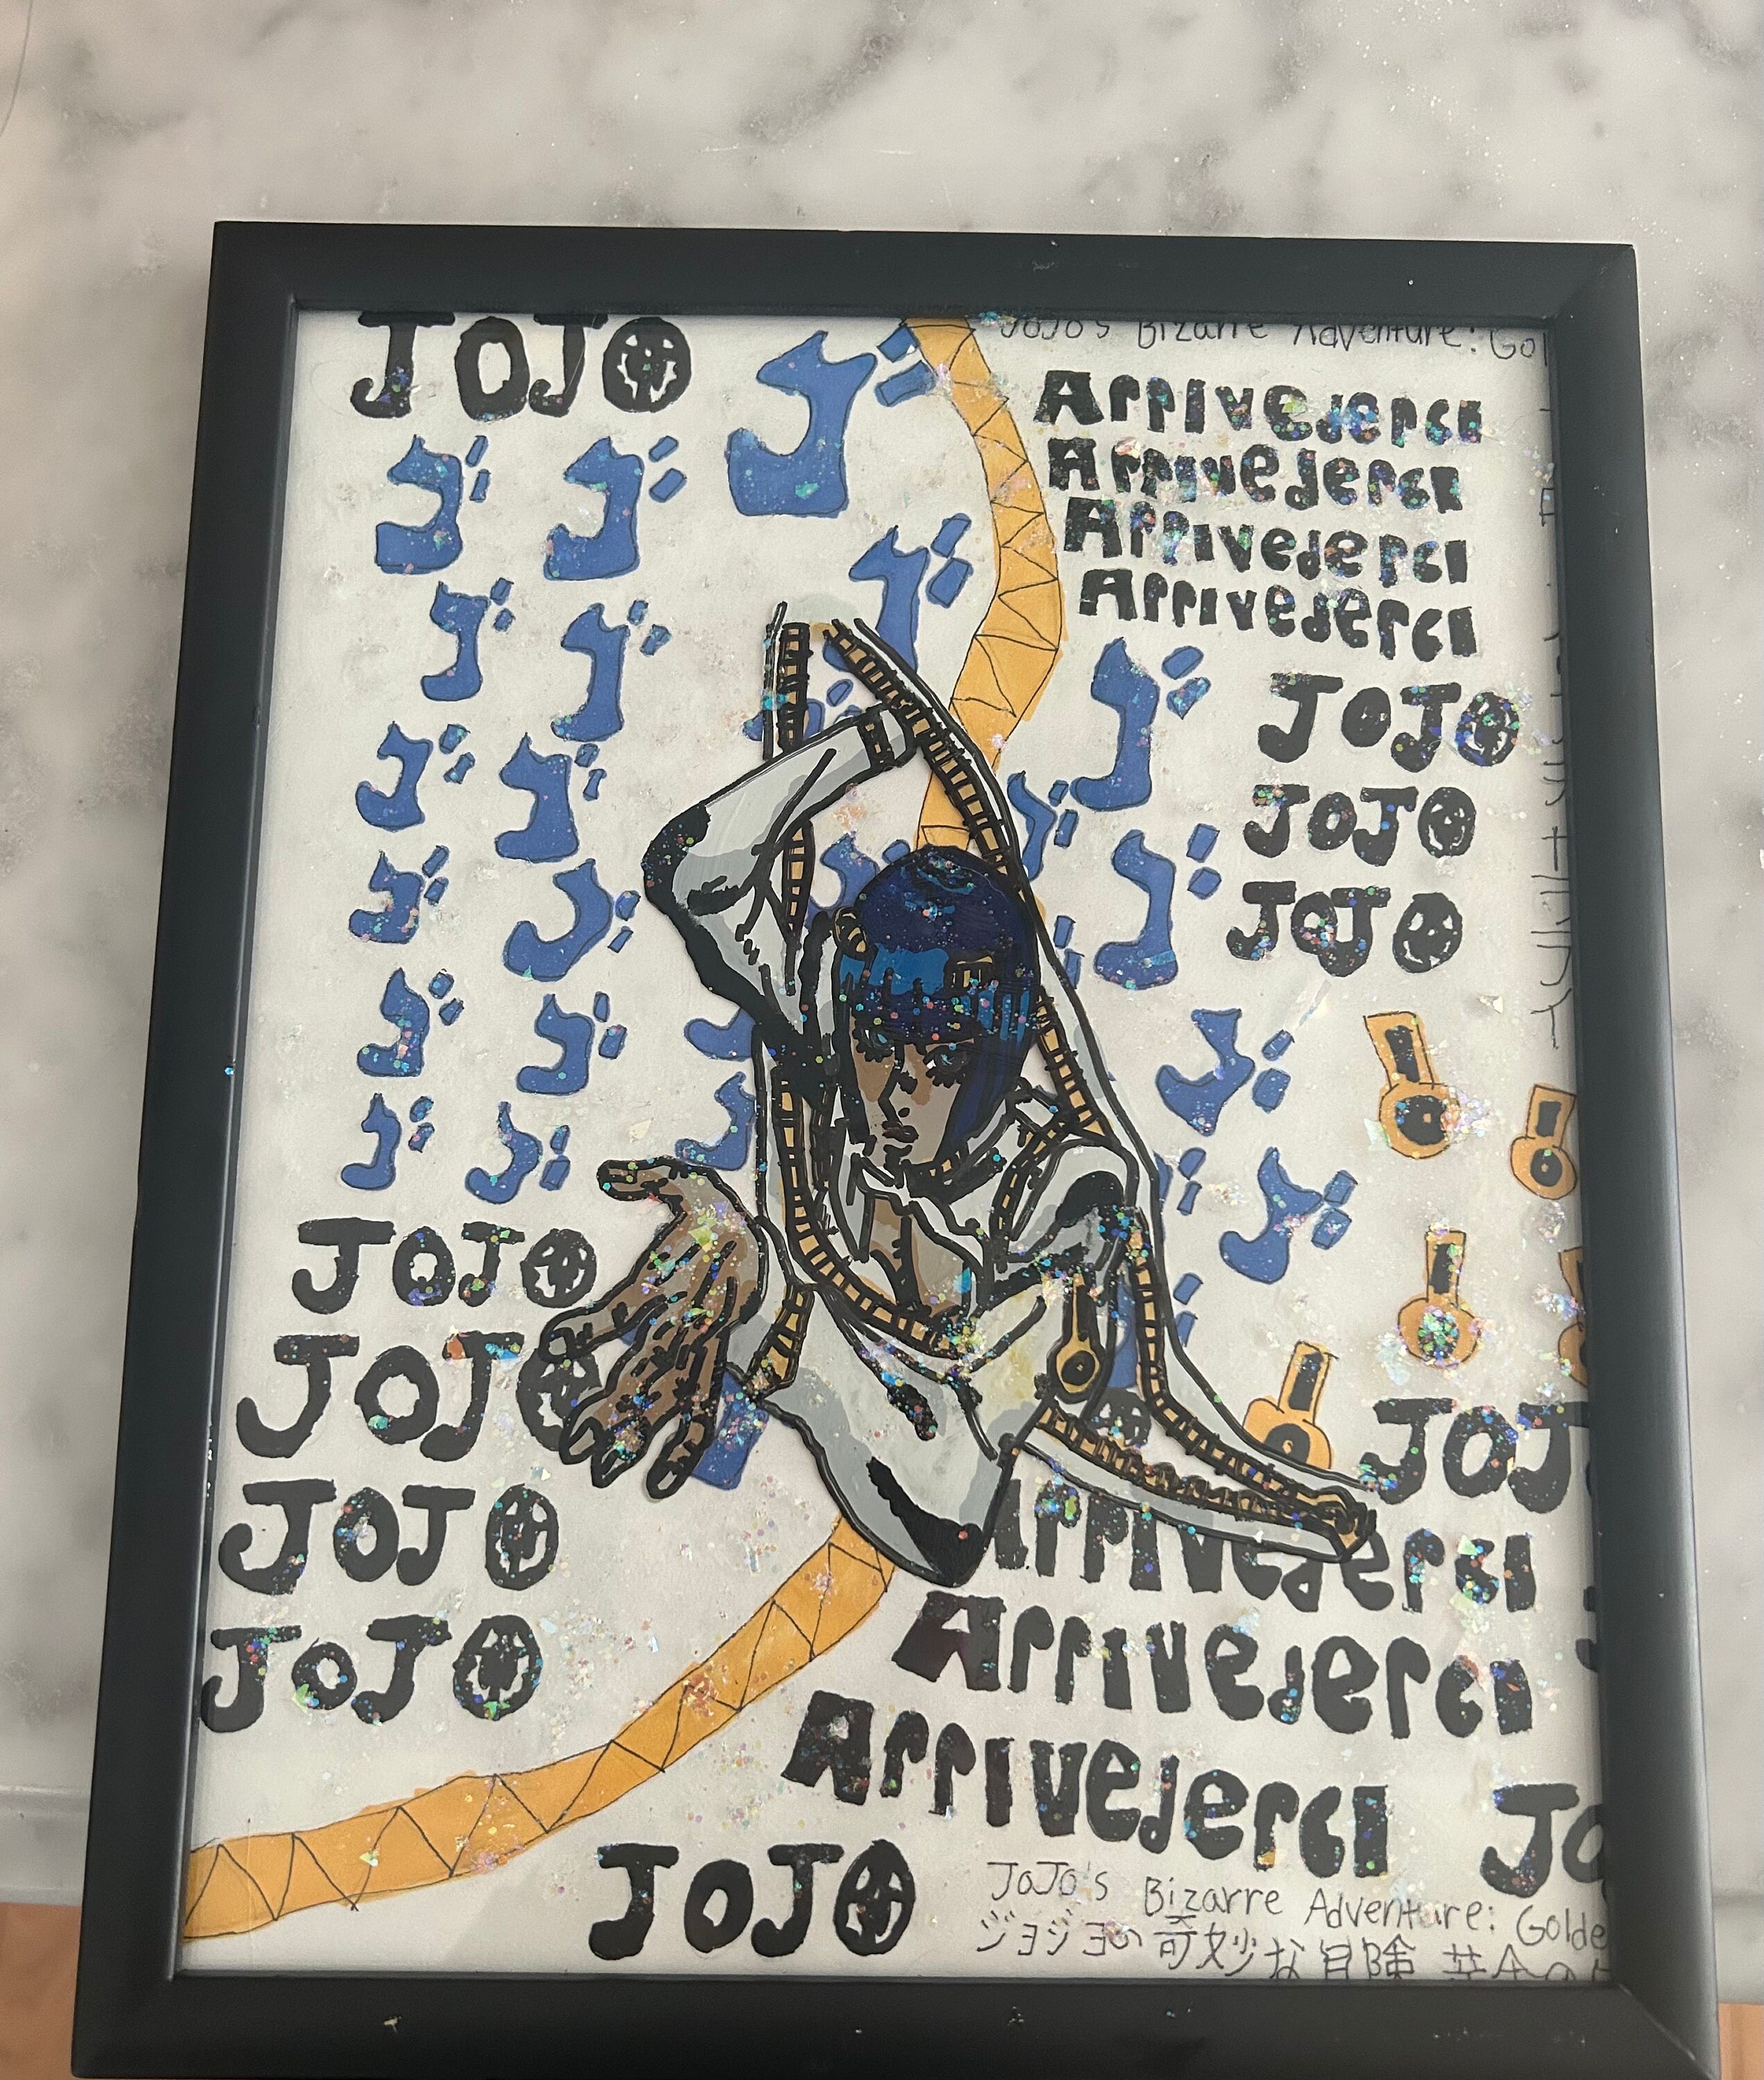 JOJO
JoJo's Bizarre Adventure: Gol
ゴ
Arrivederci
ゴ ゴ
Arrivederci
ゴ
Arrivederci
ゴ ゴ
Arrivederci
ゴ
JOJO
ゴ ゴ
JOJO
ゴ ゴ ゴ
JOJO
ゴ ゴ ゴ
ゴ ゴ ゴ
JOJO
JOJO
JOJ
JOJO
Arrivederci
JOJO
Arrivederci
Arrivederci
JO
JOJO
JoJo's Bizarre Adventure: Golde
ジョジョの奇妙な冒険 黄金の